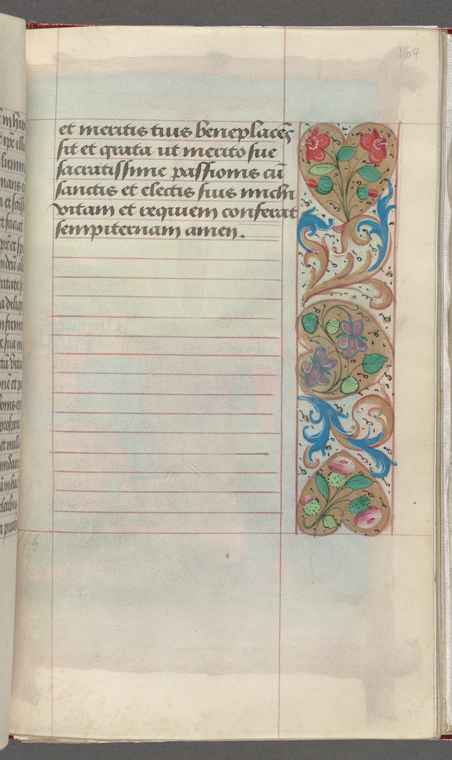 164
et meritis tuis beneplacēs
sit et grata ut merito sue
sacratissime passionis cū
sanctis et electis suis michi
vitam et requiem conferat
sempiternam amen.